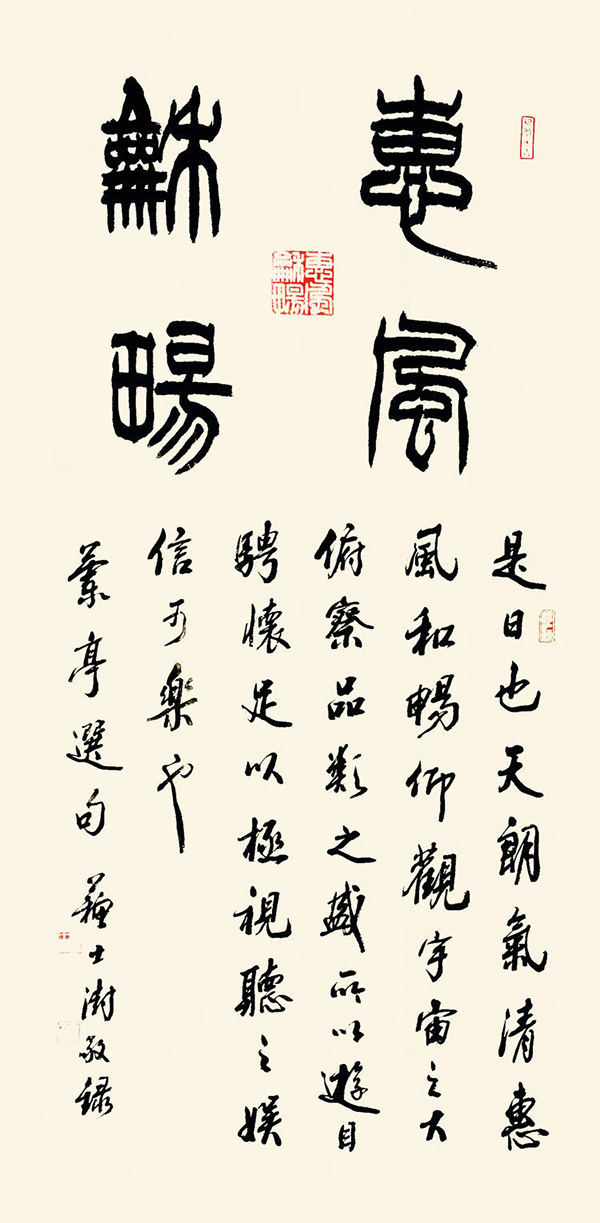 惠風
龢畼
惠風龢畼
是日也天朗氣清惠
風和暢仰觀宇宙之大
俯察品類之盛所以遊目
騁懷足以極視聽之娛
信可樂也
蘭亭選句 蘇士澍敬錄